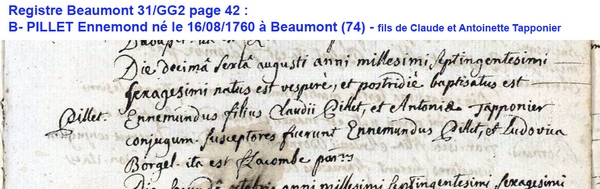 Registre Beaumont 31/GG2 page 42 :
B- PILLET Ennemond né le 16/08/1760 à Beaumont (74) - fils de Claude et Antoinette Tapponier
Die decimâ sextâ augusti anni millesimi septingentesimi
sexagesimi natus est vesperè, et postridiè baptisatus est
Pillet. Ennemundus filius Claudii Pillet, et Antoniæ Tapponier
conjugum. susceptores fuerunt Ennemundus Pillet, et Ludovica
Borgel. ita est
Die octobris anni millesimi septingentesimi sexagesimi